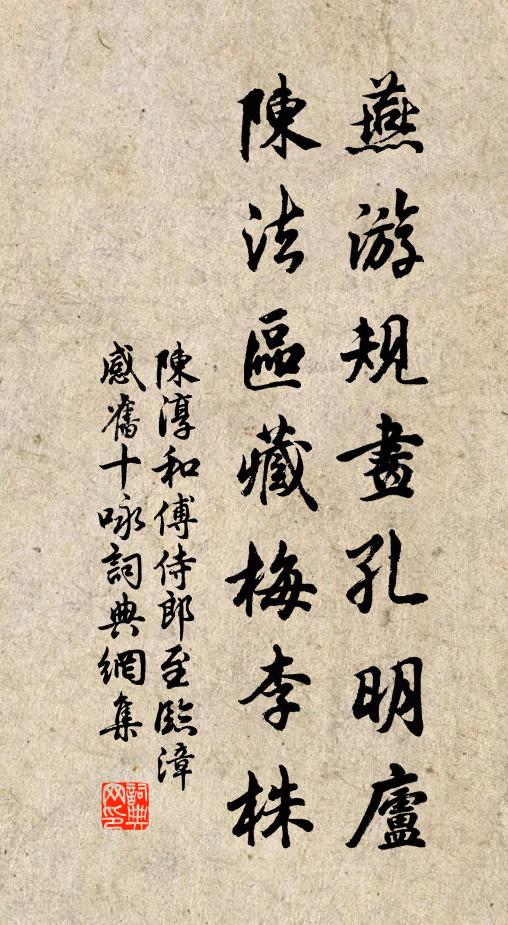 燕游規畫孔明廬
陳法區藏梅李株
陳淳和傅侍郎至臨漳
感舊十咏詞典網集
詞典
网印